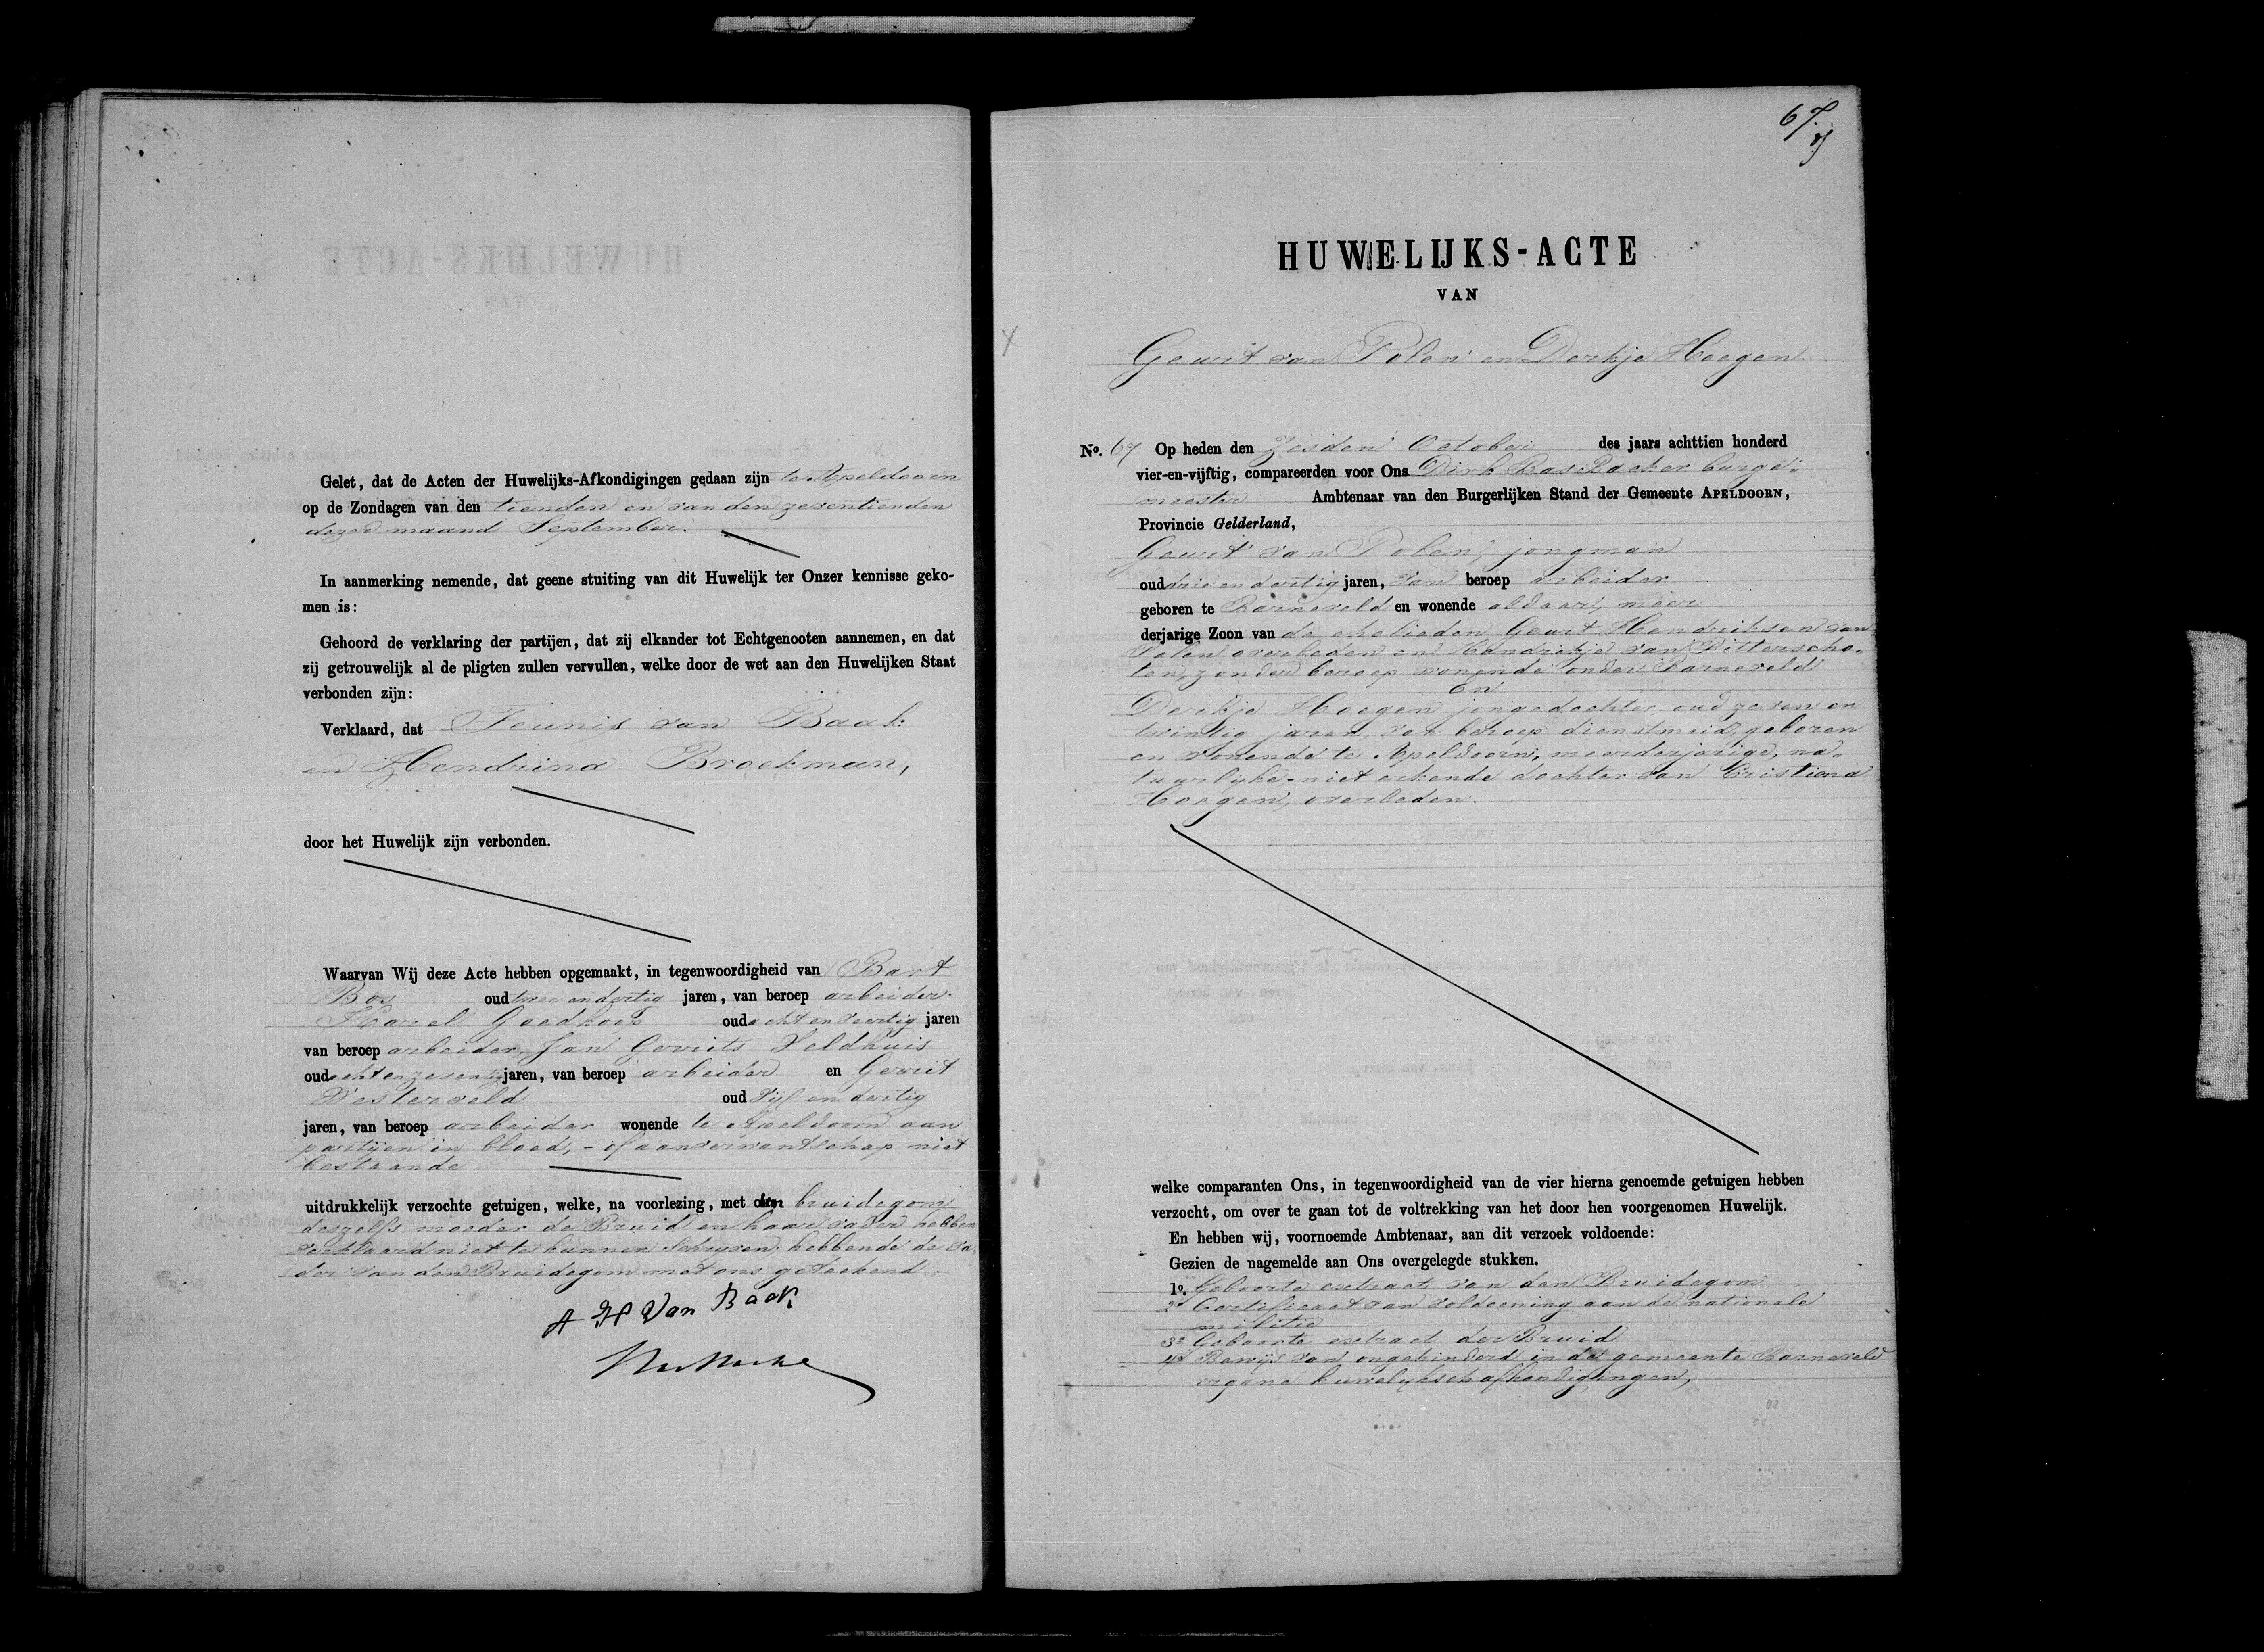 Gelet, dat de Acten der Huwelijks-Afkondigingen gedaan zijn te Apeldoorn
op de Zondagen van den tienden en van den zeventienden
dezer maand September.
In aanmerking nemende, dat geene stuiting van dit Huwelijk ter Onzer kennisse geko-
men is:
Gehoord de verklaring der partijen, dat zij elkander tot Echtgenooten aannemen, en dat
zij getrouwelijk al de pligten zullen vervullen, welke door de wet aan den Huwelijken Staat
verbonden zijn:
Verklaard, dat Teunis van Baak
en Hendrina Broekman,
door het Huwelijk zijn verbonden.
Waarvan Wij deze Acte hebben opgemaakt, in tegenwoordigheid van Bart
Bos oud twee en dertig jaren, van beroep arbeider
Karel Goedkoop oud acht en veertig jaren
van beroep arbeider, Jan Gerrits Veldhuis
oud acht en zeventig jaren, van beroep arbeider en Gerrit
Westerveld oud vijf en dertig
jaren, van beroep arbeider wonende te Apeldoorn aan
partijen in bloed,- of aanverwantschap niet
bestaande
uitdrukkelijk verzochte getuigen, welke, na voorlezing, met den bruidegom
deszelfs moeder de Bruid en haar vader hebben
verklaard niet te kunnen schryven, hebbende de va-
der van den Bruidegom met ons geteekend.
A H Van Baak
67.
HUWELIJKS-ACTE
VAN
Geurt van Polen en Derkje Hoegen.
No. 67 Op heden den Zesden October des jaars achttien honderd
vier-en-vijftig, compareerden voor Ons Dirk Bas Backer burge-
meester Ambtenaar van den Burgerlijken Stand der Gemeente APELDOORN,
Provincie Gelderland,
Geurt van Polen, jongman
oud drie en dertig jaren, van beroep arbeider
geboren te Barneveld en wonende aldaar, meer
derjarige Zoon van de echelieden Geurt Hendriksen van
Polen overleden en Hendrikje van Ditterscho-
ten, zonder beroep wonende onder Barneveld
En
Derkje Hoegen jongedochter oud zeven en
twintig jaren, van beroep dienstmeid, geboren
en wonende te Apeldoorn, meerderjarige, na-
tuurlyke-niet erkende dochter van Cristiena
Hoegen, overleden.
welke comparanten Ons, in tegenwoordigheid van de vier hierna genoemde getuigen hebben
verzocht, om over te gaan tot de voltrekking van het door hen voorgenomen Huwelijk.
En hebben wij, voornoemde Ambtenaar, aan dit verzoek voldoende:
Gezien de nagemelde aan Ons overgelegde stukken.
1o. Geboorte extract van den Bruidegom
2o Certificaat van voldoening aan de nationale
militie
3o Geboorte extract der Bruid
4o Bewijs van ongehinderd in de gemeente Barneveld
ergane huwelyksche afkondigingen,